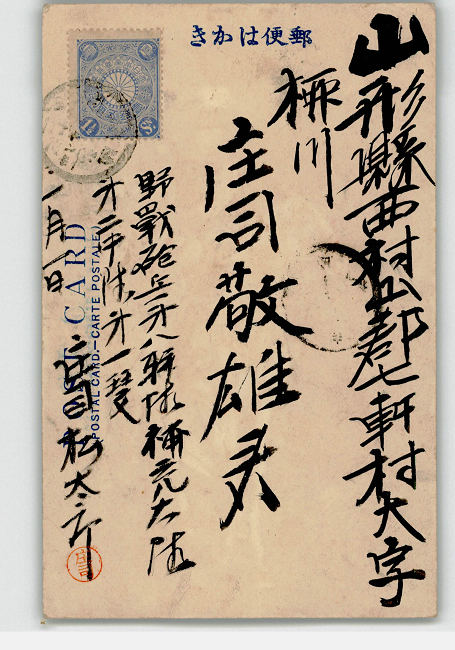 郵便はかき
山形縣西村山郡七軒村大字
柳川
庄司敬雄
野戰砲兵第八聯隊補充大隊
第二中隊第一
一月一日
庄司松太郎
庄司
POST CARD
(POSTAL CARD-CARTE POSTALE)
1½ Sn